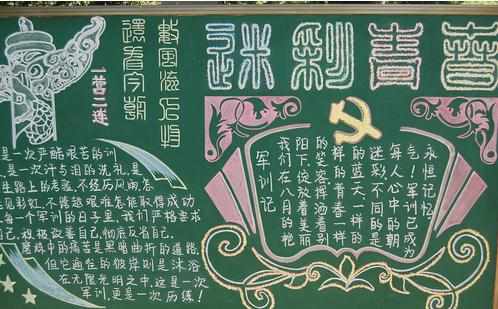 迷彩青春
還看今朝
一营二连
是一次严酷艰苦的训
是一次汗与泪的洗礼,是
生路上的考验,不经历风雨,怎
见彩虹,不携越艰难怎能取得成功
每一个军训的日子里,我们严格要求
己,积极改善自己,彻底反省自己。
磨炼中的痛苦是黑暗曲折的道路,
但它通往的彼岸则是沐浴
在无限光明之中,这是一次
军训,更是一次历练!
军训记
我们在八月的艳
阳下绽放着美丽
的笑容挥洒着别
样的青春一样
的蓝天一样的
迷彩,不同的是
每人心中的朝
气!军训已成为
永恒记忆